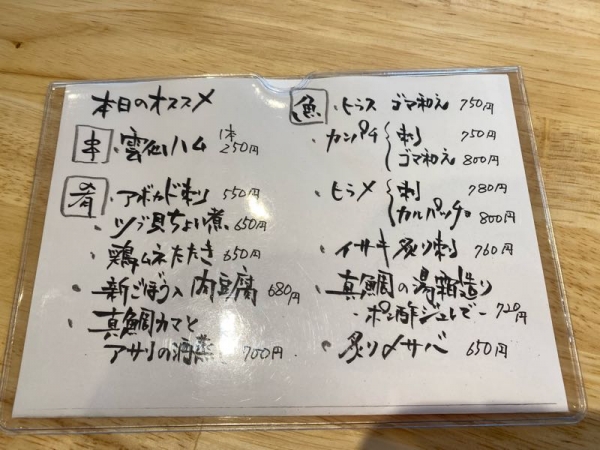 本日のオススメ
串・雲仙ハム 1本 250円
肴・アボカド刺 550円
・ツブ貝ちょい煮。650円
・鶏ムネたたき 650円
・新ごぼう入 肉豆腐 680円
・真鯛カマと
アサリの酒蒸 700円
魚・ヒラス ゴマ和え 750円
・カンパチ 刺 750円
ゴマ和え 800円
・ヒラメ 刺 780円
カルパッチョ。800円
・イサキ炙り刺 760円
・真鯛の湯霜造り
-ポン酢ジュレで- 720円
・炙り〆サバ 650円